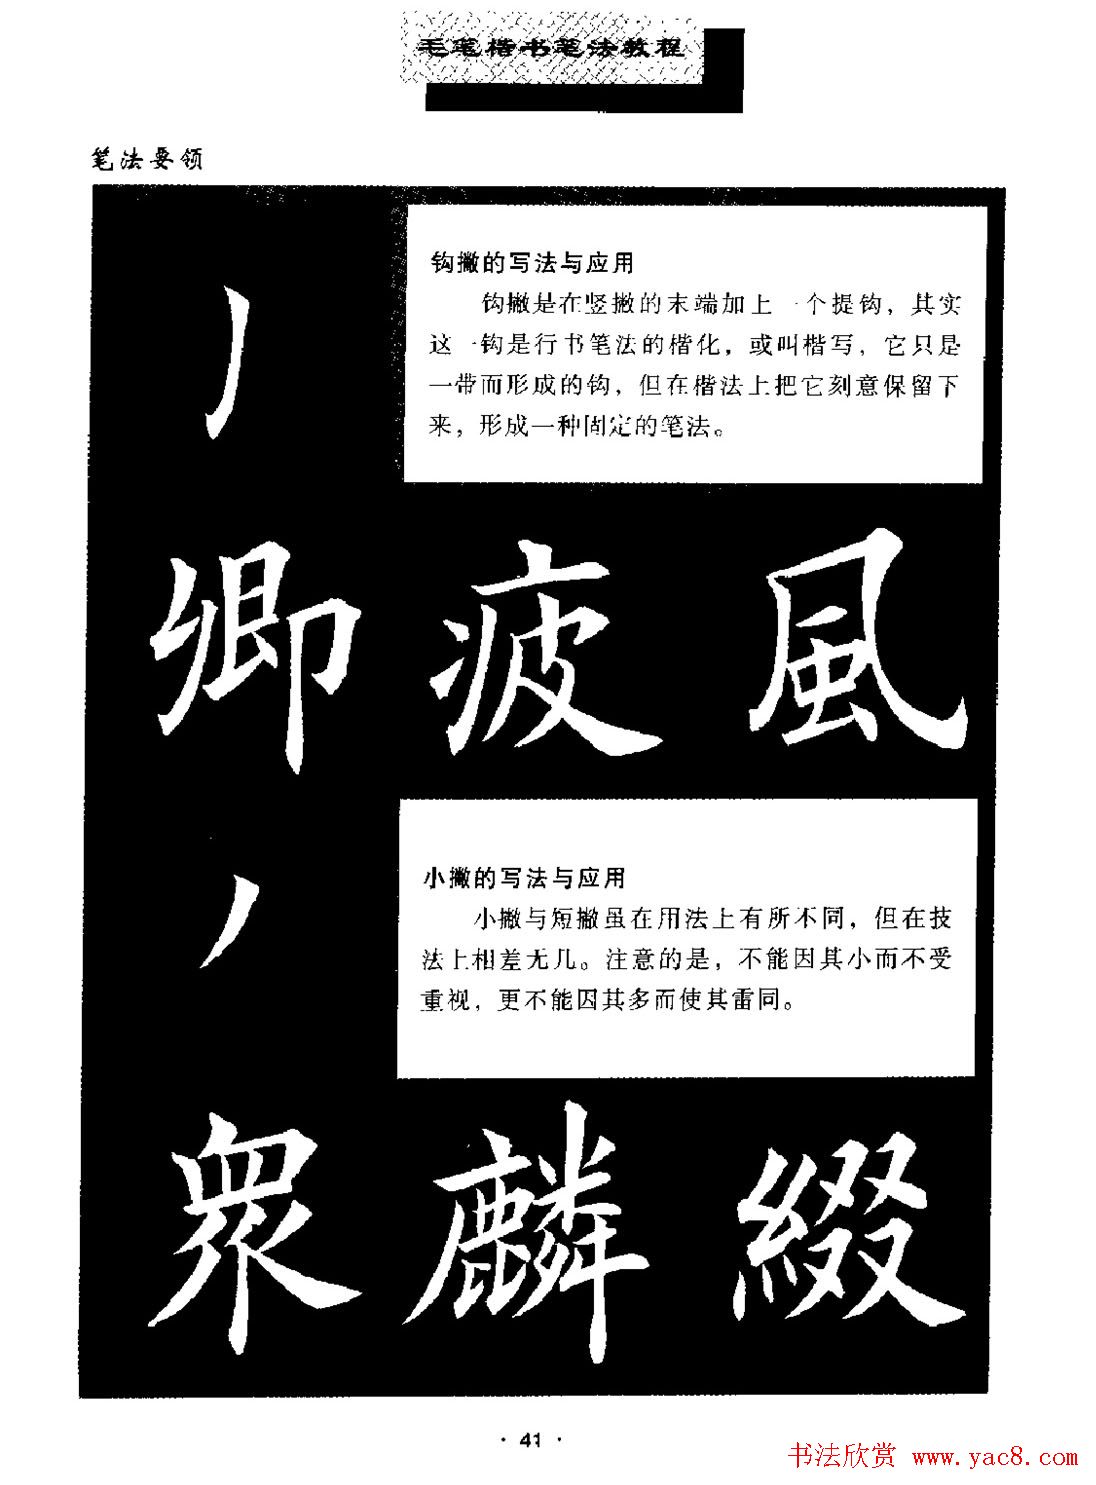 毛笔楷书笔法教程
笔法要领
钩撇的写法与应用
钩撇是在竖撇的末端加上一个提钩，其实
这一钩是行书笔法的楷化，或叫楷写，它只是
一带而形成的钩，但在楷法上把它刻意保留下
来，形成一种固定的笔法。
卿 疲 風
小撇的写法与应用
小撇与短撇虽在用法上有所不同，但在技
法上相差无几。注意的是，不能因其小而不受
重视，更不能因其多而使其雷同。
眾 麟 綴
· 41 ·
书法欣赏 www.yac8.com